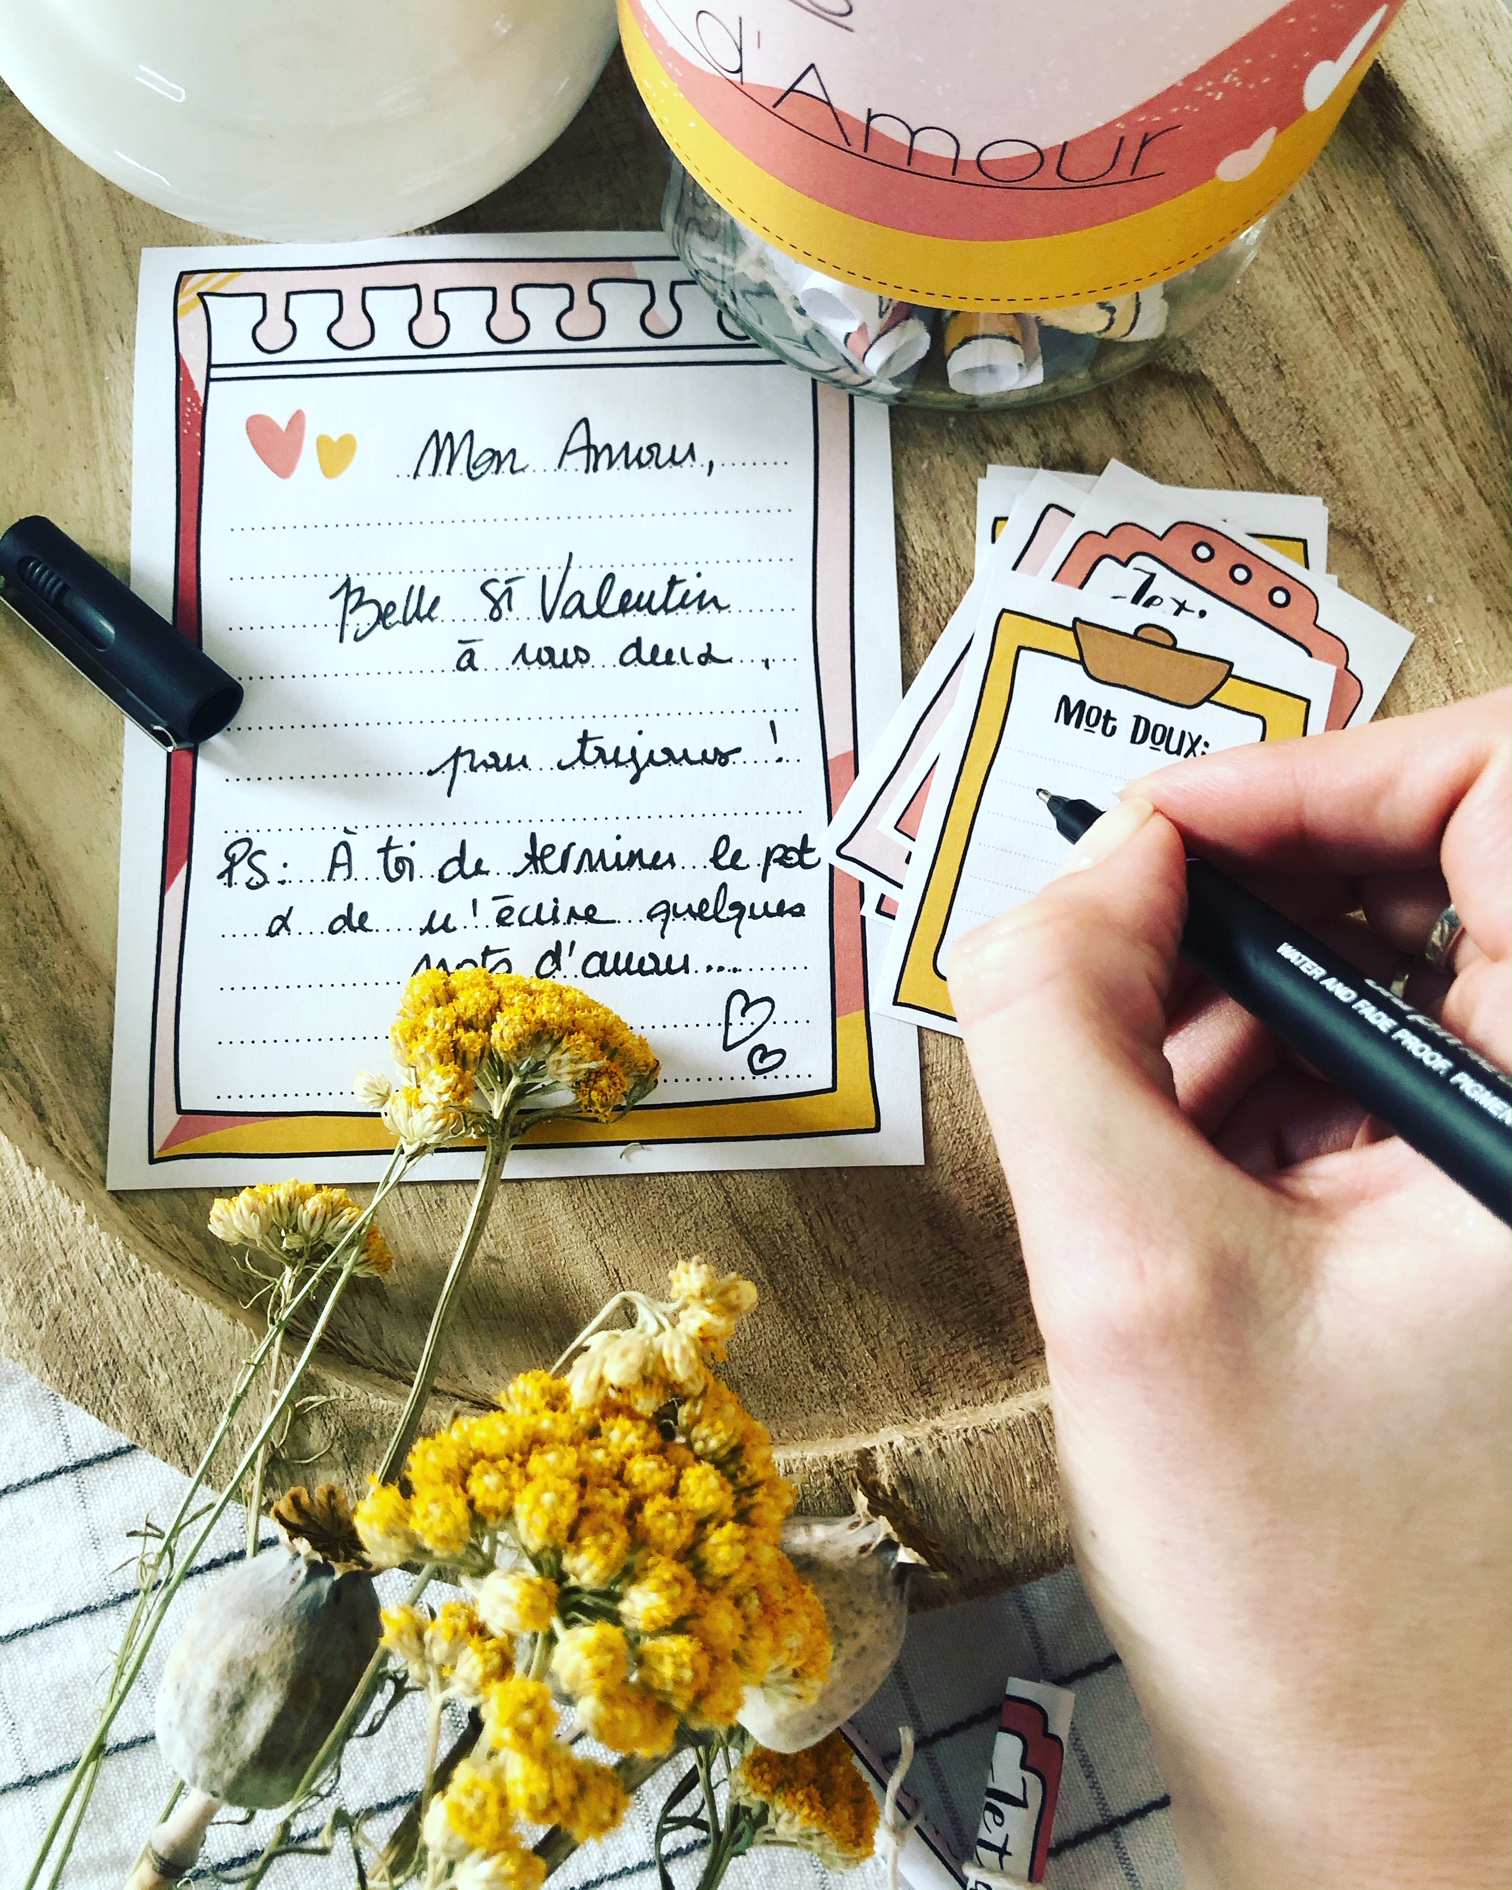 d'Amour
Mon Amour,
Belle St Valentin
à nous deux,
pour toujours !
PS: À toi de terminer le pot
& de m'écrire quelques
mots d'amour...
Mot Doux:
WATER AND FADE PROOF, PIGMEN